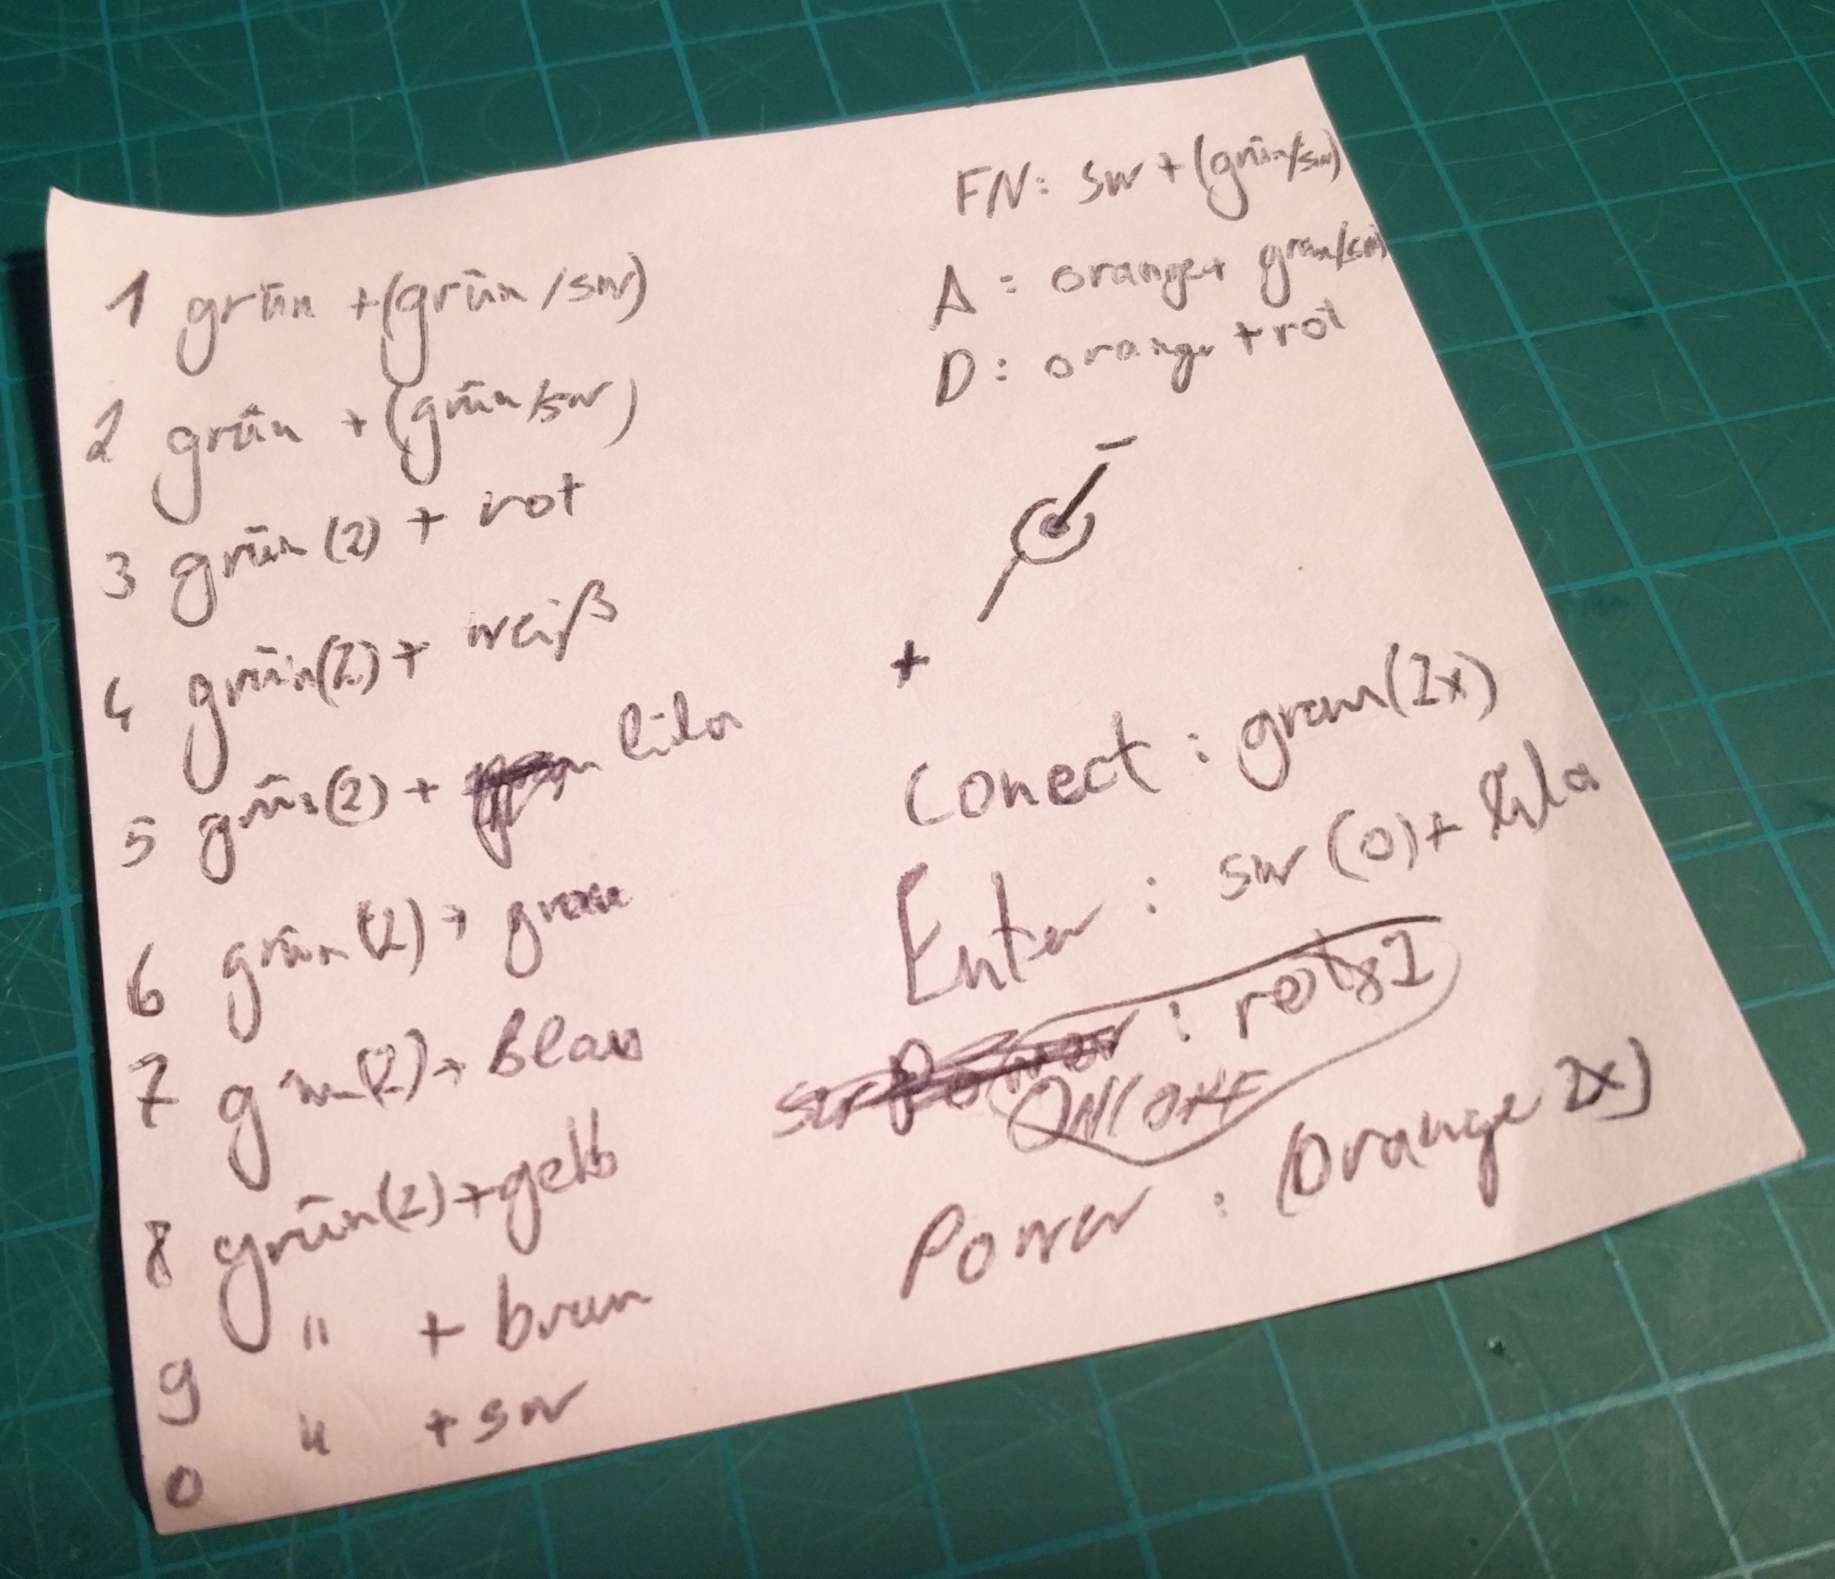 1 grün + (grün/sw)
2 grün + (grün/sw)
3 grün (2) + rot
4 grün (2) + weiß
5 grün (2) + lila
6 grün (2) + grau
7 grün (2) + Blau
8 grün (2) + gelb
9 " + brun
0 " + sw
FN: sw + (grün/sw)
A: orange + grün/sw
D: orange + rot
-
+
Conect: grau (2x)
Enter: sw (0) + lila
Power: rot
ON/OFF
Power: (Orange 2x)